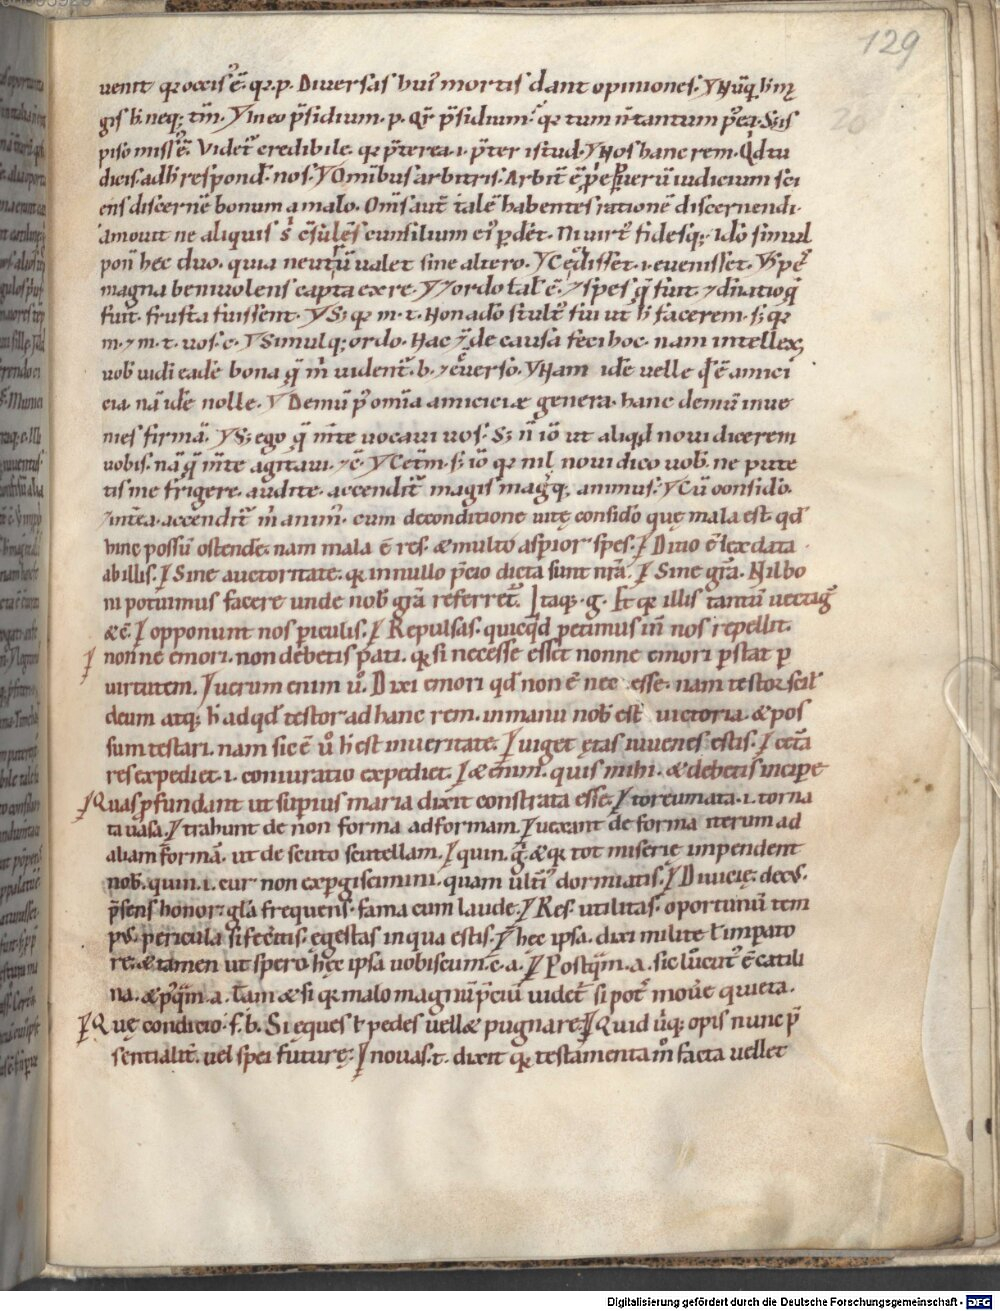 129
26
uenit qr occisꝰ ē. qr. p. Diuersas huiꝰ mortis dant opiniones.
gis h̄. neq; tm̄. In eo p̄sidium. p. Qr p̄sidium. qr tum n̄ tantum p̄ea. S; is
piso missꝰ ē. Videt̄ credibile. qr p̄terea .i. p̄ter istud. Nos hanc rem. Qd tu
dicis. ad h̄ respond. nos. Omībus arbitris. Arbit̄ ē uerū iudicium sci
ens discernē bonum a malo. Om̄s aut̄ talē habentes rationē discernendi.
amouit ne aliquis consilium eiꝰ p̱dēt. Ni uirtꝰ fidesq; ido simul
pon̄ hec duo. quia neutrū ualet sine altero. Cedisset .i. euenisset. spē
magna beniuolens capta ex re.
fuit. frustra fuissent. S; qr m. t. Non ado stultꝰ fui ut h̄ facerem. s; qr
m. m. t. uos. c. Simul q; ordo. Hac de causa feci hoc. nam intellex;
uob̄ uidi eadē bona q̄ m̄ uidentꝰ. b. Nam idē uelle ē amici
cia. nā idē nolle. Demū p̱ omīa amiciciæ genera. hanc demū inue
nies firmā. S; ego q̄ m̄te uocaui uos. S; n̄ iō ut aliqd noui dicerem
uobis. nā q̄ m̄te agitaui. s; iō qr nil noui dico uob̄. ne pute
tis me frigere. audite. accendit̄ magis mag̱q; animus. Cū consido.
int̄ea. accendit̄ m̄ animꝰ. cum deconditione uitę consido quę mala est. qd
hinc possū ostende. nam mala ē res. & multo asp̱ior spes. Ditio ē lex data
ab illis. Sine auctoritate. qr in nullo p̄cio dicta sunt nr̄a. Sine gr̄a. Nil bo
ni potuimus facere unde nob̄ gr̄a referret̄. Itaq;. g. Et qr illis tantū uectig̱
&c̄. opponunt nos p̱iculis. Repulsas. quicq̱d petimus in̄ nos repellit.
nonne emori. non debetis p̱ati. qr si necesse esset nonne emori p̱stat p̱
uirtutem. Uerum enim ū. Dixi emori qd non ē necesse. nam testor scil̄
deum atq; h̄ ad qd testor ad hanc rem. in manu nob̄ est uictoria. & pos
sum testari. nam sic ē ū h̄ est in ueritate. uiget ętas iuuenes estis. cet̄a
res expediet .i. coniuratio expediet. &enim. quis mihi. & debetis incip̱e
Quas p̱fundant ut sup̱ius maria dixit constrata esse. toreumata .i. torna
ta uasa. trahunt de non forma ad formam. uexant de forma iterum ad
aliam formā. ut de scuto scutellam. quin. g̱. & qr tot miserię impendent
nob̄. quin .i. cur non exp̱giscimini. quam ultꝰ dormiatis. Diuicię. decꝰ.
p̄sens honor. gl̄a frequens. fama cum laude. Res. utilitas. oportunū tem
pꝰ. pericula si fec̄tis. egestas in qua estis. hęc ipsa. dixi milite ł imp̱ato
re. & tamen ut spero hęc ipsa uobiscum. c. a. Postq̄m. a. sic ē catili
na. & p̱q̄m. a. Tam & si qr malo magnū p̄ciū uidet̄ si pot̄ mouē quieta.
Quę condicio. f. b. Si eques ł pedes uellæ pugnare. Quid ūq; opis nunc p̄
sentialit̄. uel spei futurę; nouas. t. dixit qr testamenta m̊ facta uellet
Digitalisierung gefördert durch die Deutsche Forschungsgemeinschaft - DFG